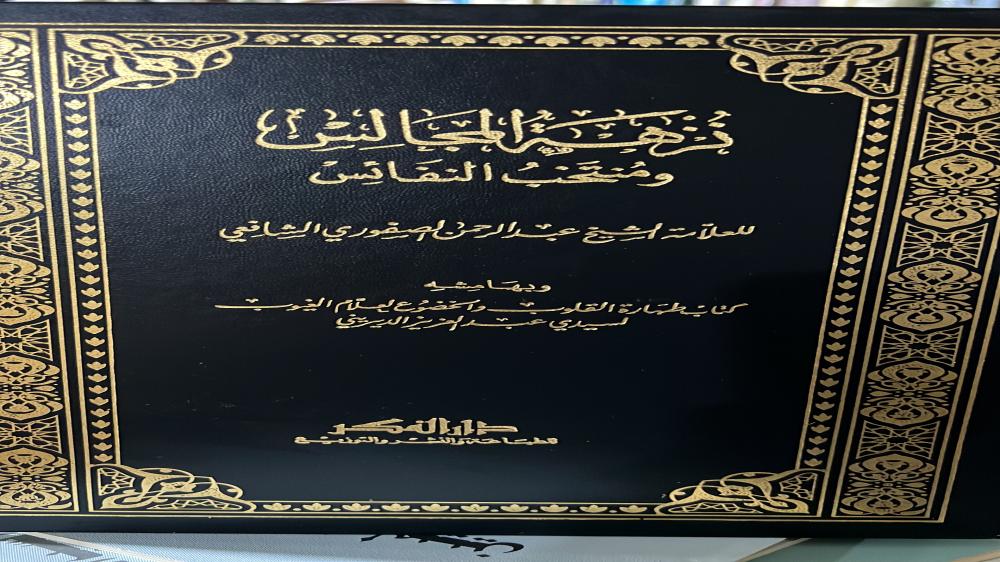 نُزهَةُ المَجَالِسْ
ومُنتَخَبُ النفَائِسْ
للعلّامة الشيخ عبد الرحمن الصفوري الشافعي
وبهامشه
كتاب طهارة القلوب والخضوع لعلّام الغيوب
لسيدي عبد العزيز الديريني
دار الفكر
للطباعة والنشر والتوزيع